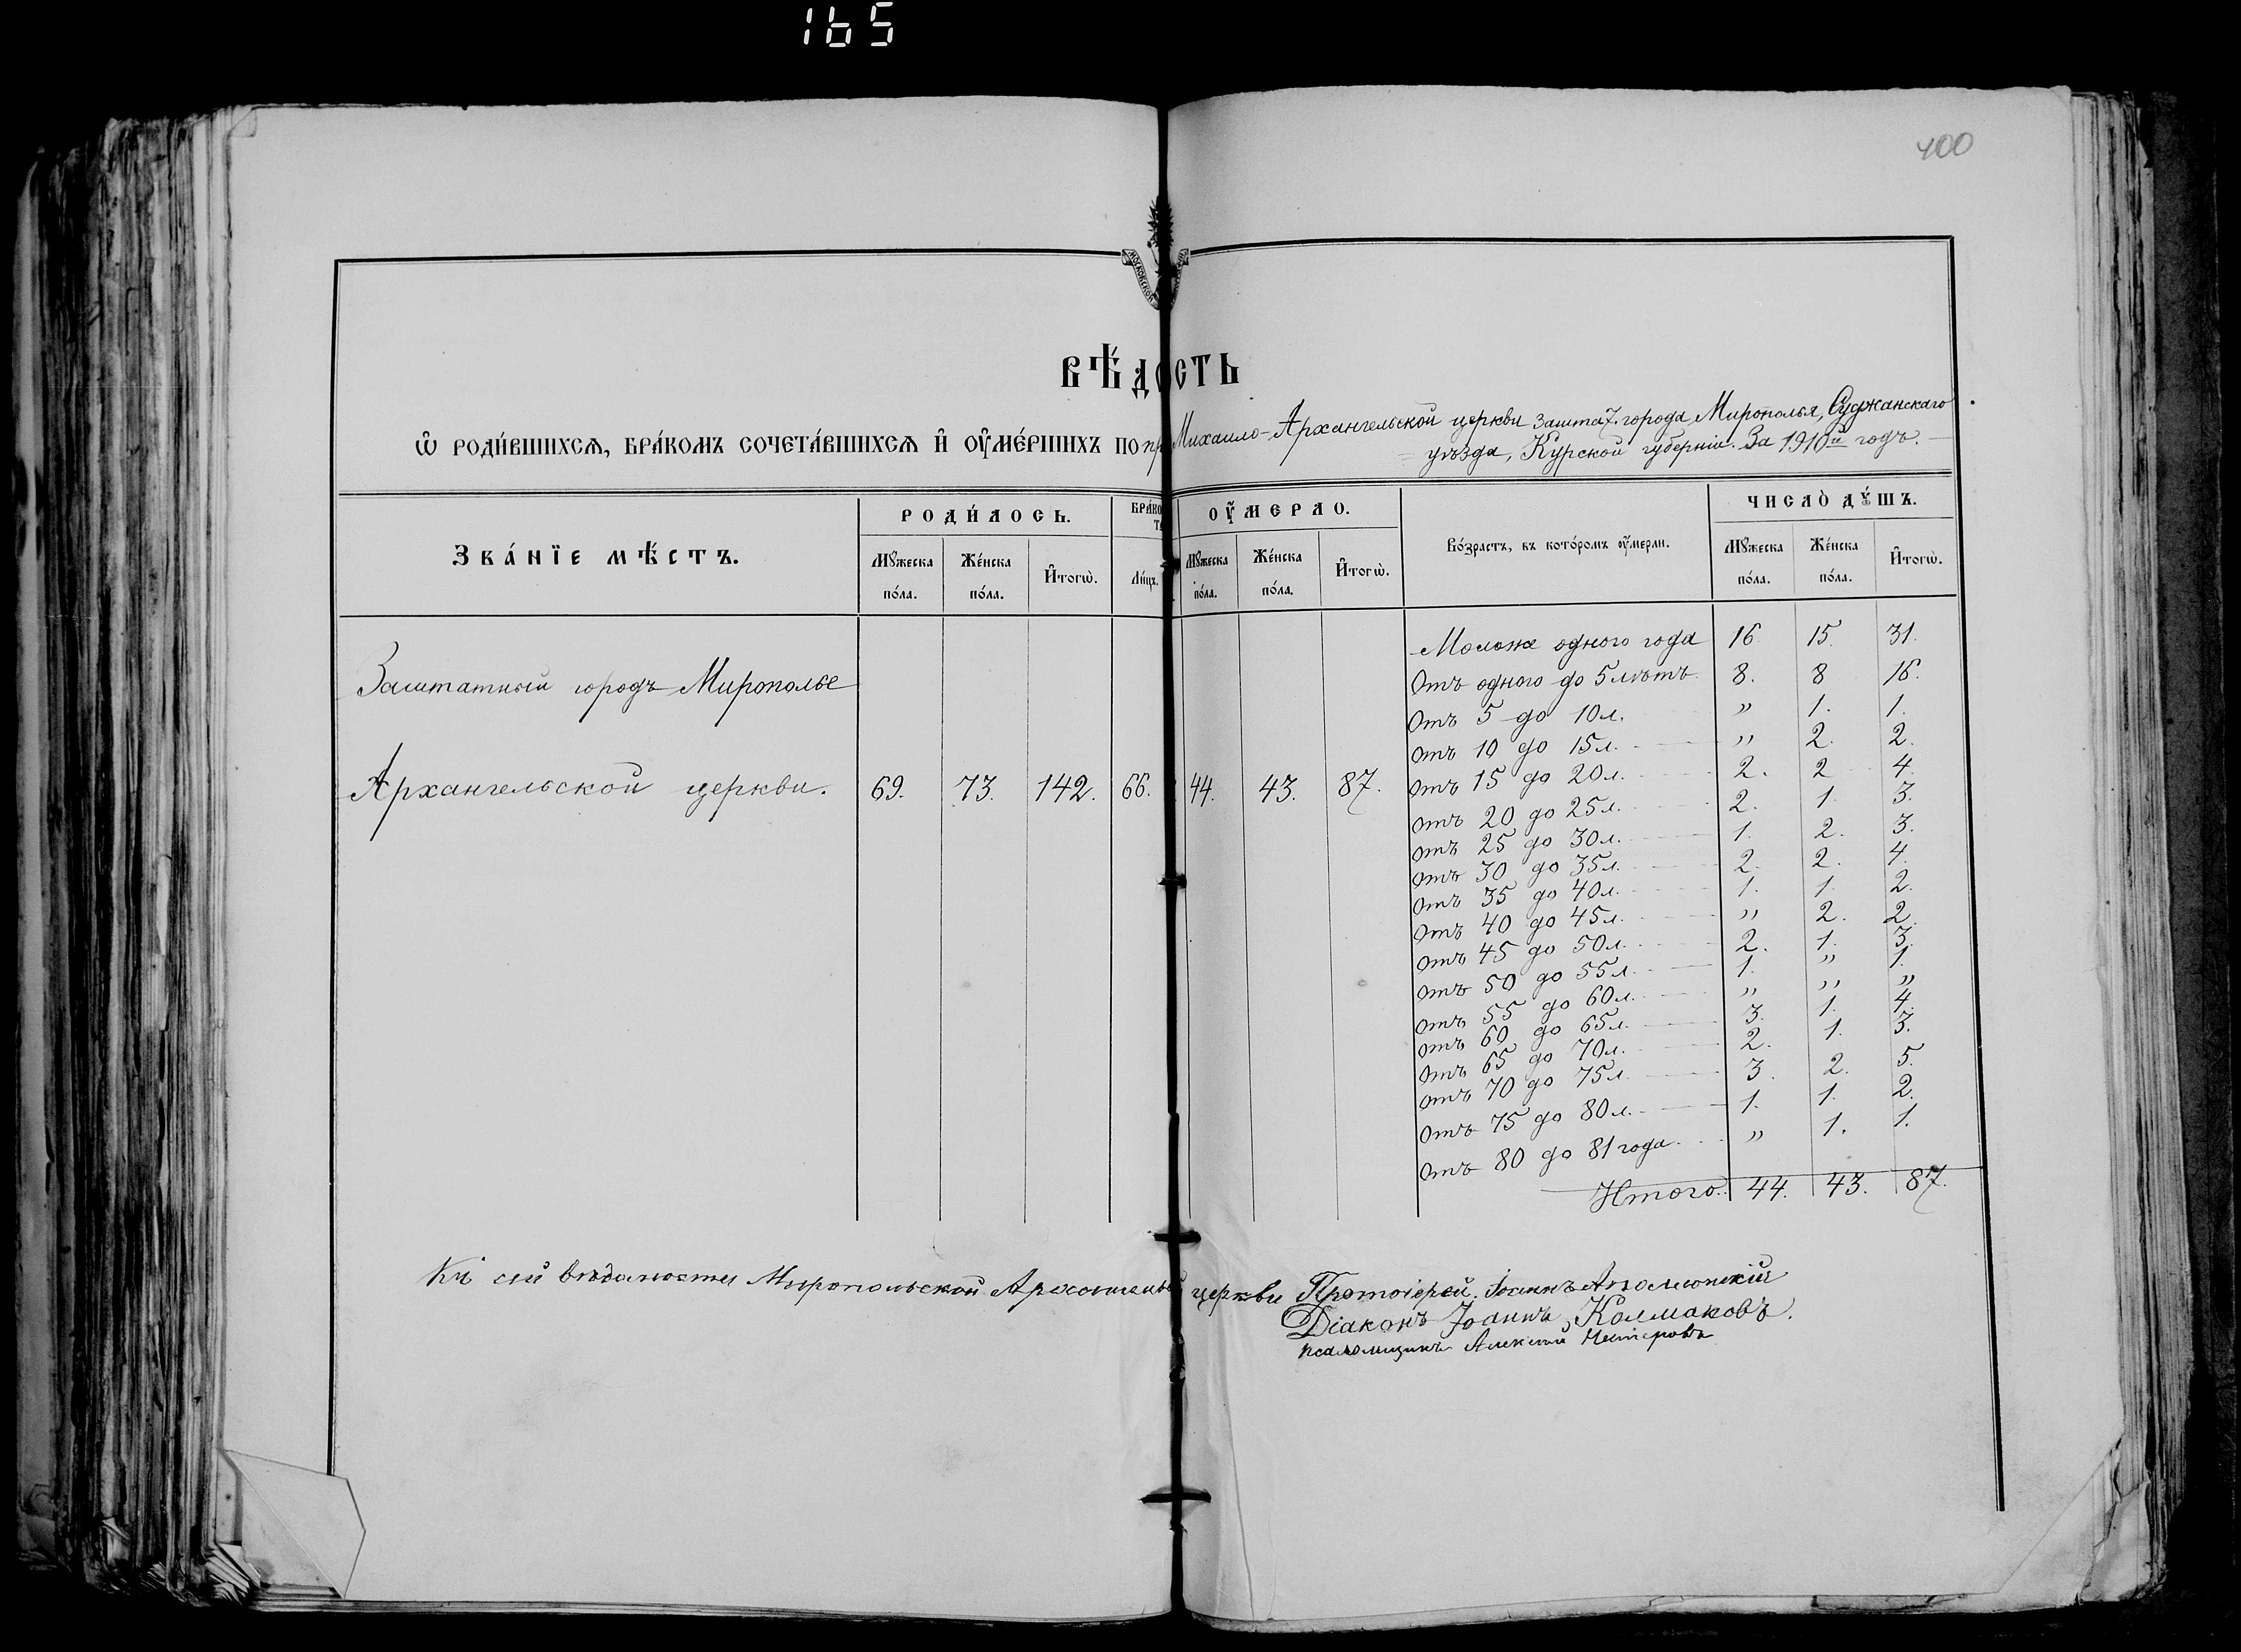 165
400
ВѢ́ДОСТЬ
Ѡ҆ РОДИ́ВШИХСѦ, БРА́КОМЪ СОЧЕТА́ВШИХСѦ И҆ ОУ҆МЕ́РШИХЪ ПО Михаило-Архангельской церкви зашта7. города Мирополья, Суджанскаго
уѣзда, Курской губерніи. За 1910й годъ.
ЗВА́НЇЕ МѢ́СТЪ.
РОДИ́ЛОСЬ.
Мꙋжеска по́ла.
Же́нска по́ла.
И҆тогѡ̀.
БРА́КО
Ли́цъ.
ОУ҆МЕРЛО.
Мꙋжеска по́ла.
Же́нска по́ла.
И҆тогѡ̀.
Во́зрастъ, въ кото́ромъ оу҆мерли.
ЧИСЛО̀ ДꙊ́ШЪ.
Мꙋжеска по́ла.
Же́нска по́ла.
И҆тогѡ̀.
Заштатный городъ Мирополье
Архангельской церкви. 69. 73. 142. 66. 44. 43. 87.
Моложе одного года 16. 15. 31.
Отъ одного до 5 лѣтъ. 8. 8 16.
Отъ 5 до 10 л. „ 1. 1.
Отъ 10 до 15 л. „ 2. 2.
Отъ 15 до 20 л. 2. 2 4.
Отъ 20 до 25 л. 2. 1. 3.
Отъ 25 до 30 л. 1. 2. 3.
Отъ 30 до 35 л. 2. 2. 4.
Отъ 35 до 40 л. 1. 1. 2.
Отъ 40 до 45 л. „ 2. 2.
Отъ 45 до 50 л. 2. 1. 3.
Отъ 50 до 55 л. 1. „ 1.
Отъ 55 до 60 л. „ „ „
Отъ 60 до 65 л. 3. 1. 4.
Отъ 65 до 70 л. 2. 1. 3.
Отъ 70 до 75 л. 3. 2. 5.
Отъ 75 до 80 л. 1. 1. 2.
Отъ 80 до 81 года. „ 1. 1.
Итого. 44. 43. 87.
Къ сей вѣдомости Миропольской церкви Протоіерей Іоаннъ
Діаконъ Іоаннъ Колмаковъ.
псаломщикъ Алексей Нестеровъ